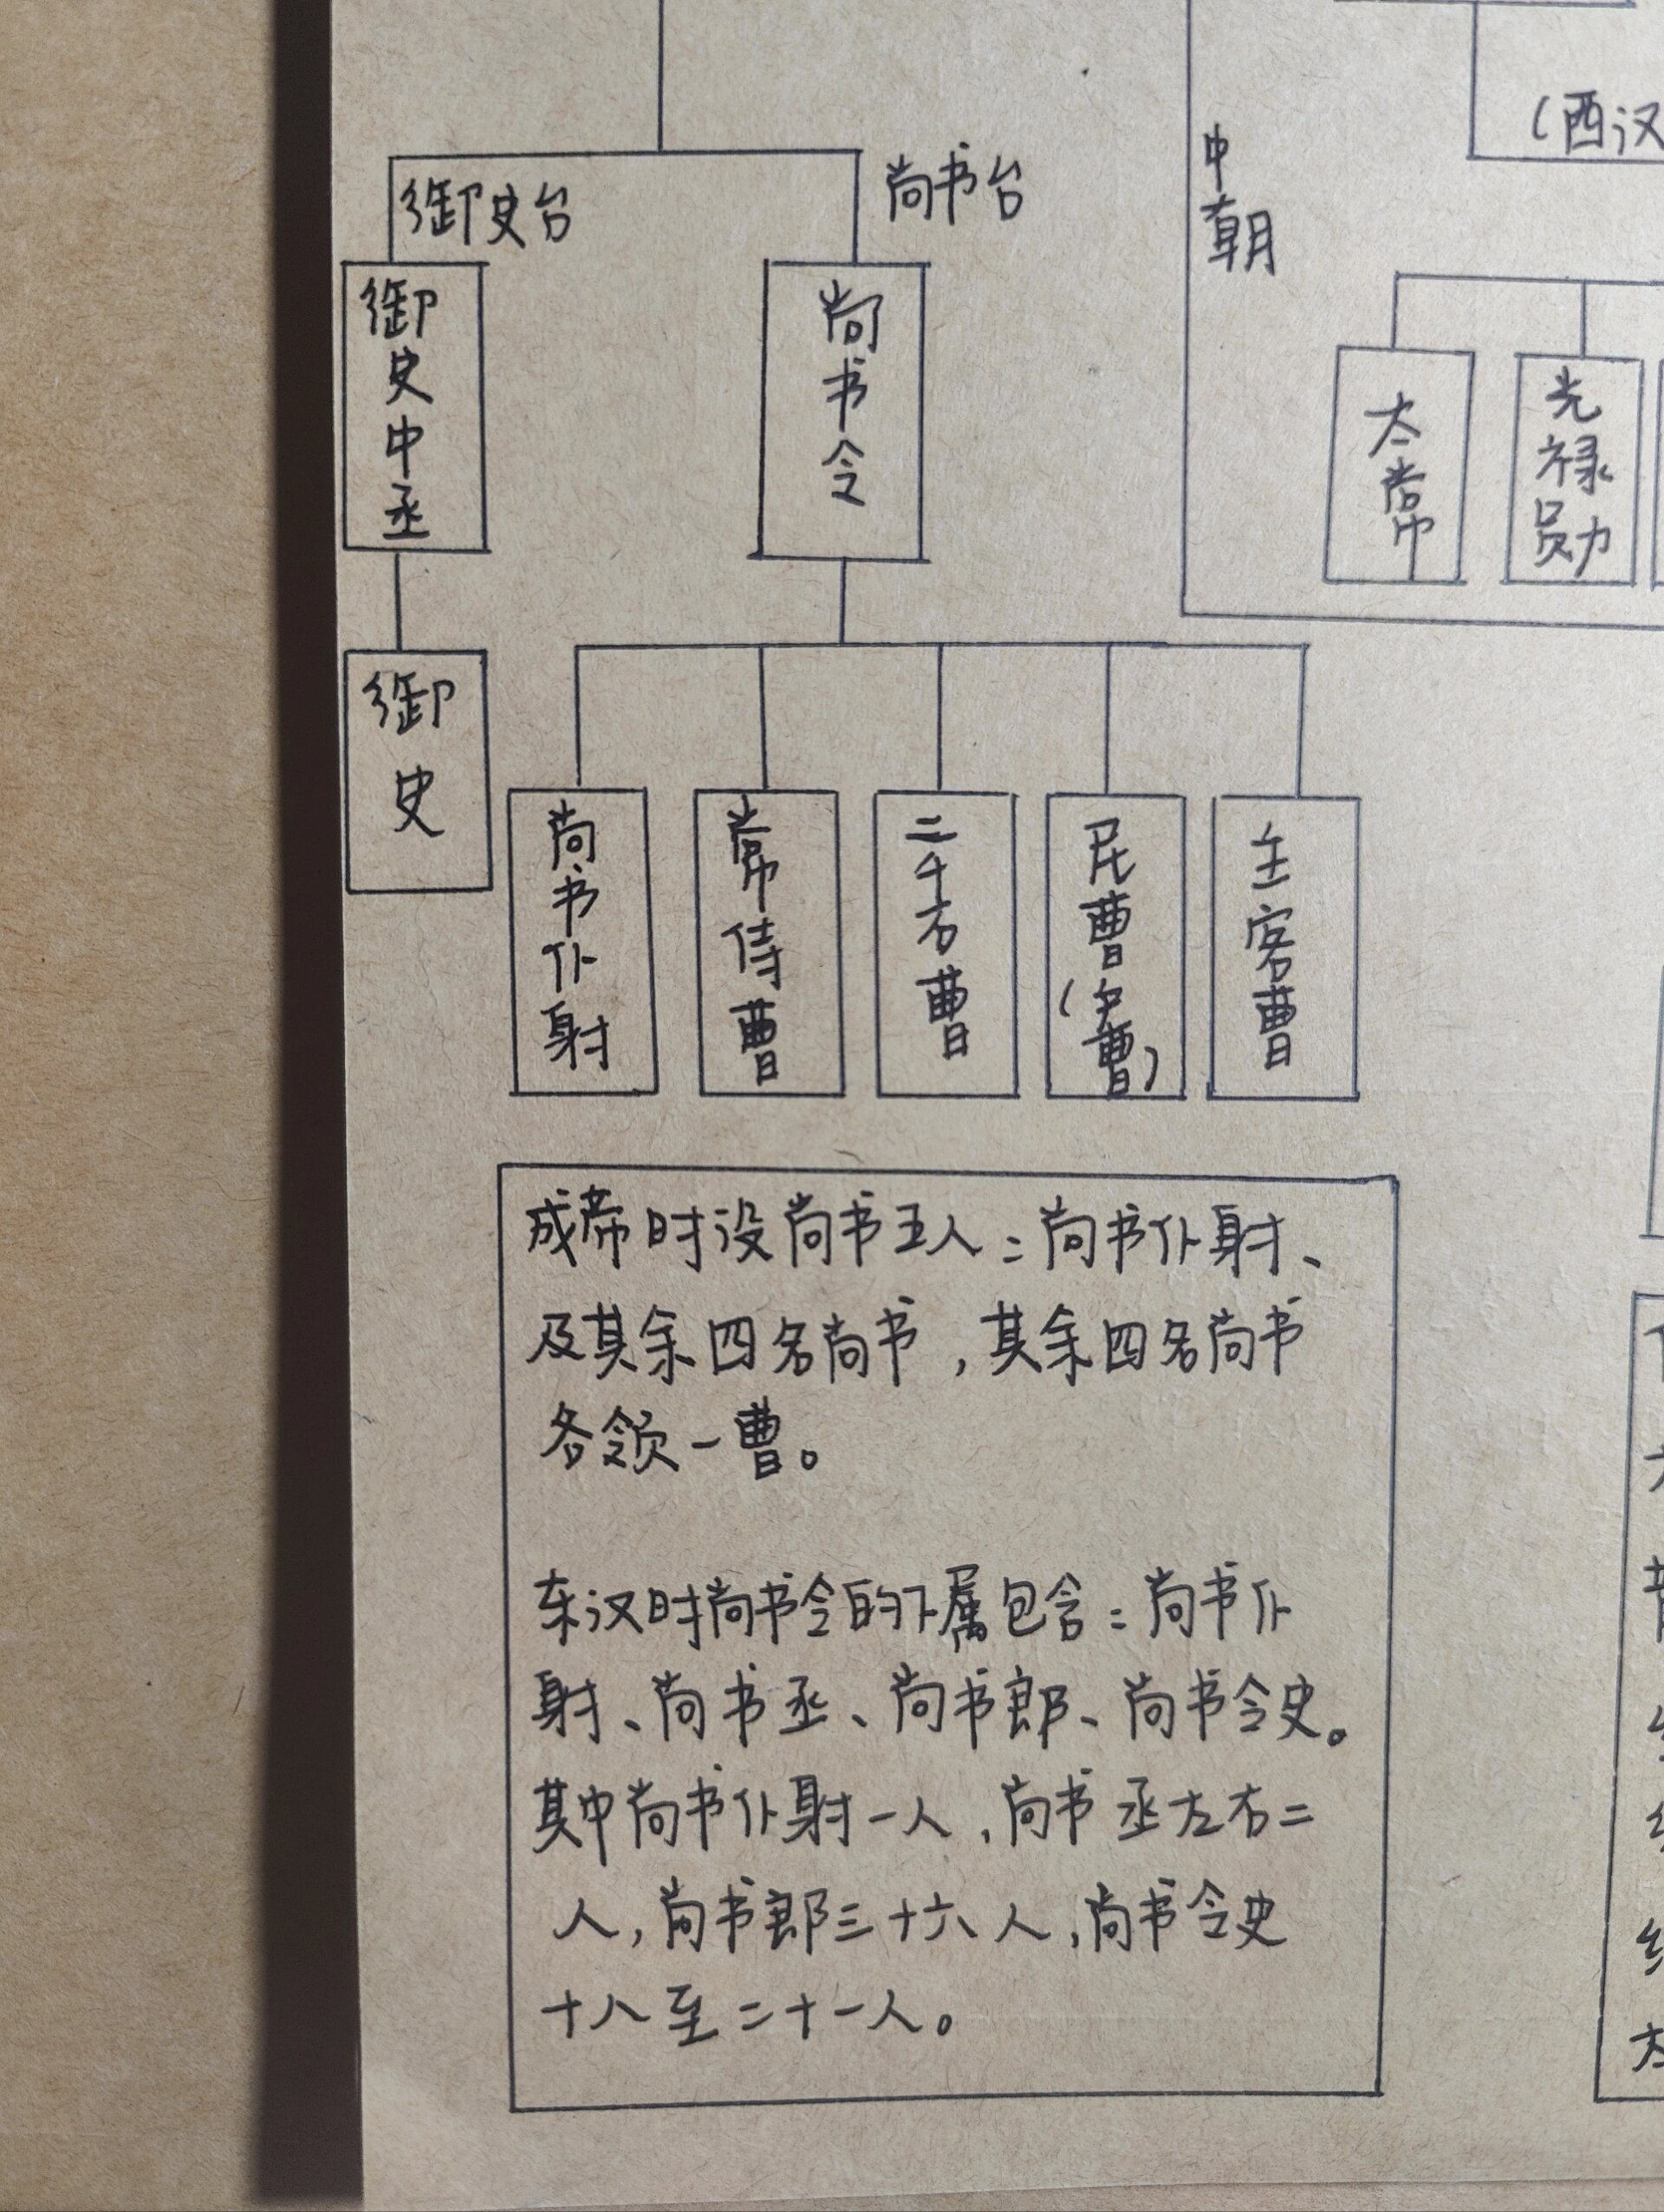 (西汉
御史台
尚书台
中朝
御史中丞
尚书令
太常
光禄勋
御史
尚书仆射
常侍曹
二千石曹
民曹
主客曹
成帝时设尚书五人：尚书仆射、
及其余四名尚书，其余四名尚书
各领一曹。
东汉时尚书令的下属包含：尚书仆
射、尚书丞、尚书郎、尚书令史。
其中尚书仆射一人，尚书丞左右二
人，尚书郎三十六人，尚书令史
十八至二十一人。